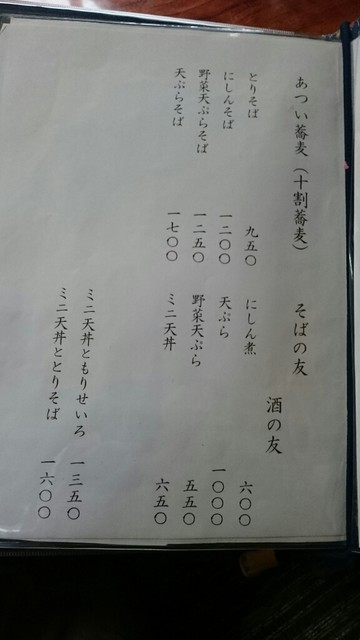 あつい蕎麦（十割蕎麦）
とりそば 九五〇
にしんそば 一二〇〇
野菜天ぷらそば 一二五〇
天ぷらそば 一七〇〇
そばの友
酒の友
にしん煮 六〇〇
天ぷら 一〇〇〇
野菜天ぷら 五五〇
ミニ天丼 六五〇
ミニ天丼ともりせいろ 一三五〇
ミニ天丼ととりそば 一六〇〇